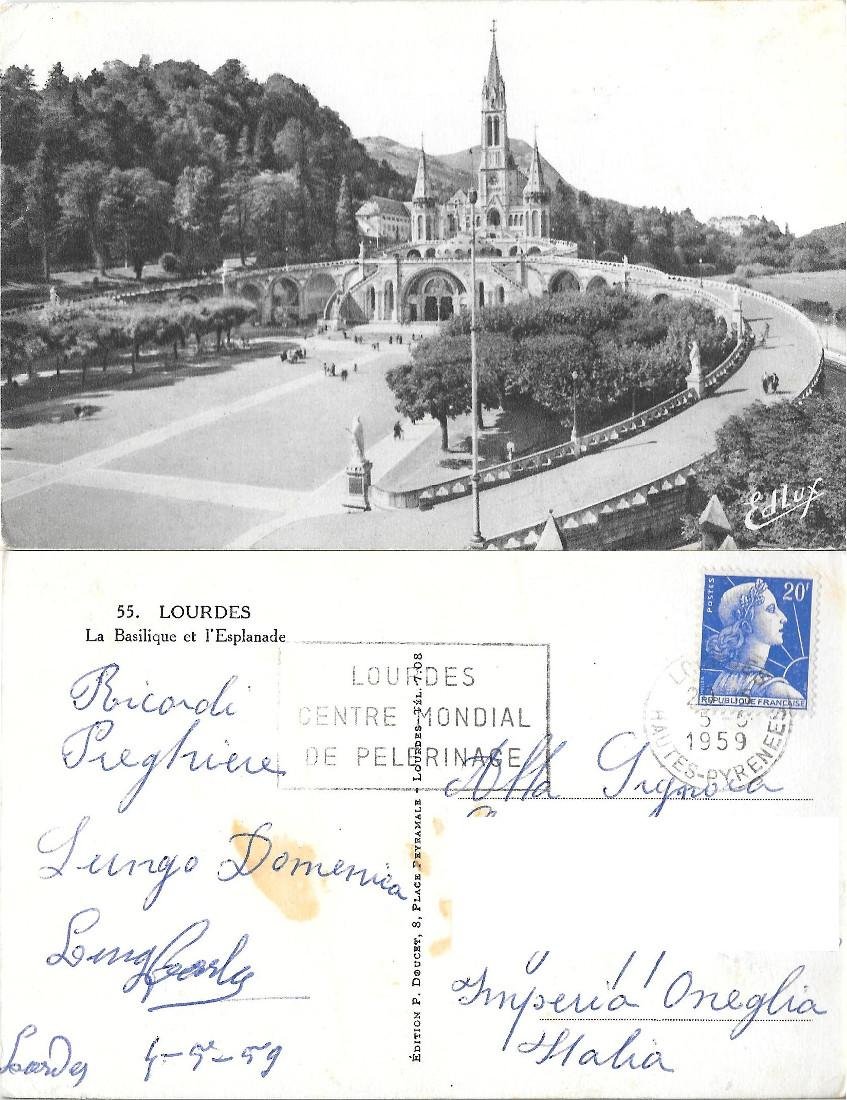 Edlux
55. LOURDES
La Basilique et l'Esplanade
LOURDES
CENTRE MONDIAL
DE PELERINAGE
POSTES
20F
REPUBLIQUE FRANÇAISE
5-5
1959
HAUTES-PYRENEES
Ricordi
Preghiere
Lungo Domenica
Carla
Lourdes 4-5-59
EDITION P. DOUCET, 8, PLACE PEYRAMALE - LOURDES - TÉL. 7.08
Alla Signora
Imperia Oneglia
Italia